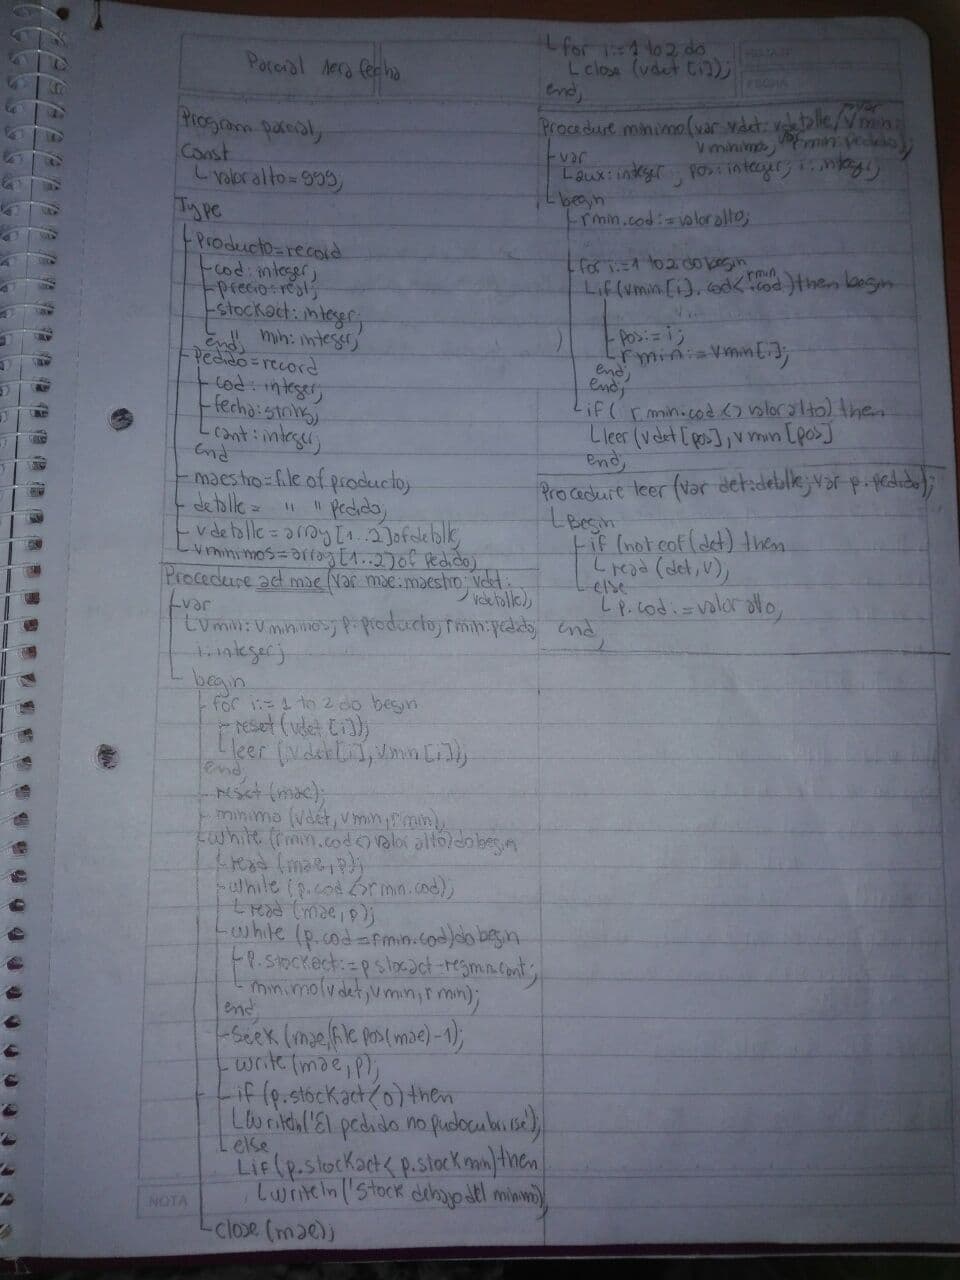 Parcial 1era fecha
Program parcial;
Const
valoralto=999;
Type
Producto=record
cod: integer;
precio: real;
stockact: integer;
" min: integer;
end;
Pedido=record
cod: integer;
fecha: string;
cant: integer;
end
maestro=file of producto;
detalle = " " pedido;
vdetalle = array[1..2] of detalle;
vminimos=array[1..2] of Pedido;
Procedure act mae (var mae:maestro; vdet:
vdetalle);
var
vmin: vminimos; p:producto; rmin:pedido;
i: integer;
begin
for i:= 1 to 2 do begin
reset (vdet [i]);
leer (vdet[i], vmin[i]);
end;
reset (mae);
minimo (vdet, vmin, rmin);
while (rmin.cod<>valoralto)do begin
read (mae,p);
while (p.cod<>rmin.cod);
read (mae,p);
while (p.cod=rmin.cod)do begin
p.stockact:=p.stockact-regmin.cant;
minimo(vdet,vmin,rmin);
end;
seek (mae,filepos(mae)-1);
write (mae,p);
if (p.stockact<0) then
writeln('El pedido no pudo cubrirse');
else
if (p.stockact< p.stockmin) then
writeln ('Stock debajo del minimo)
close (mae);
for i:=1 to 2 do
close (vdet [i]);
end;
Procedure minimo(var vdet: vdetalle; var vmin:
vminimos; var rmin: pedido);
var
aux: integer; pos: integer; i: integer;
begin
rmin.cod:=valoralto;
for i:=1 to 2 do begin
if (vmin[i].cod< rmin.cod) then begin
pos:= i;
rmin:= vmin[i];
end;
end;
if ( rmin.cod <> valoralto) then
leer (vdet [pos], vmin [pos]
end;
Procedure leer (var det:detalle; var p:pedido);
Begin
if (not eof (det) then
read (det,v);
else
p.cod:=valoralto;
end;
NOTA
FECHA